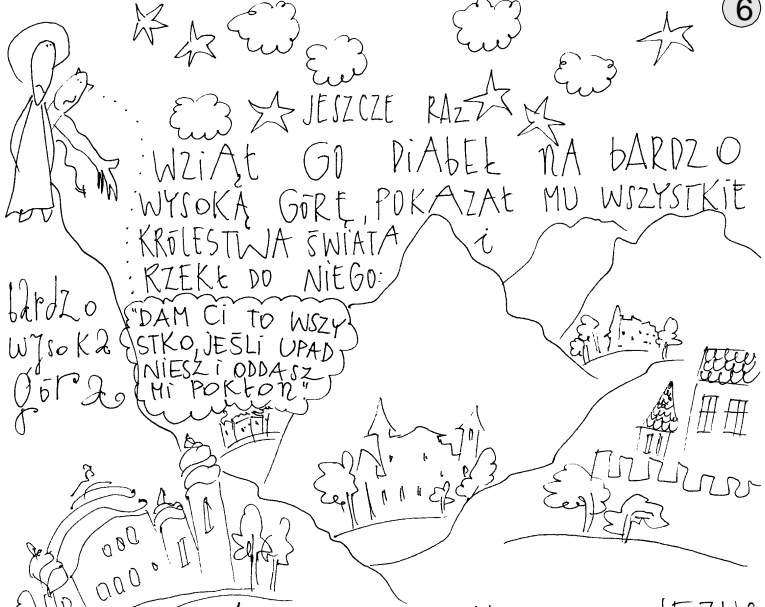 6
JESZCZE RAZ
WZIĄŁ GO DIABEŁ NA BARDZO
WYSOKĄ GÓRĘ, POKAZAŁ MU WSZYSTKIE
KRÓLESTWA ŚWIATA i
RZEKŁ DO NIEGO:
"DAM CI TO WSZY
STKO, JEŚLI UPAD
NIESZ I ODDASZ
MI POKŁON"
bardzo
wysoka
góra